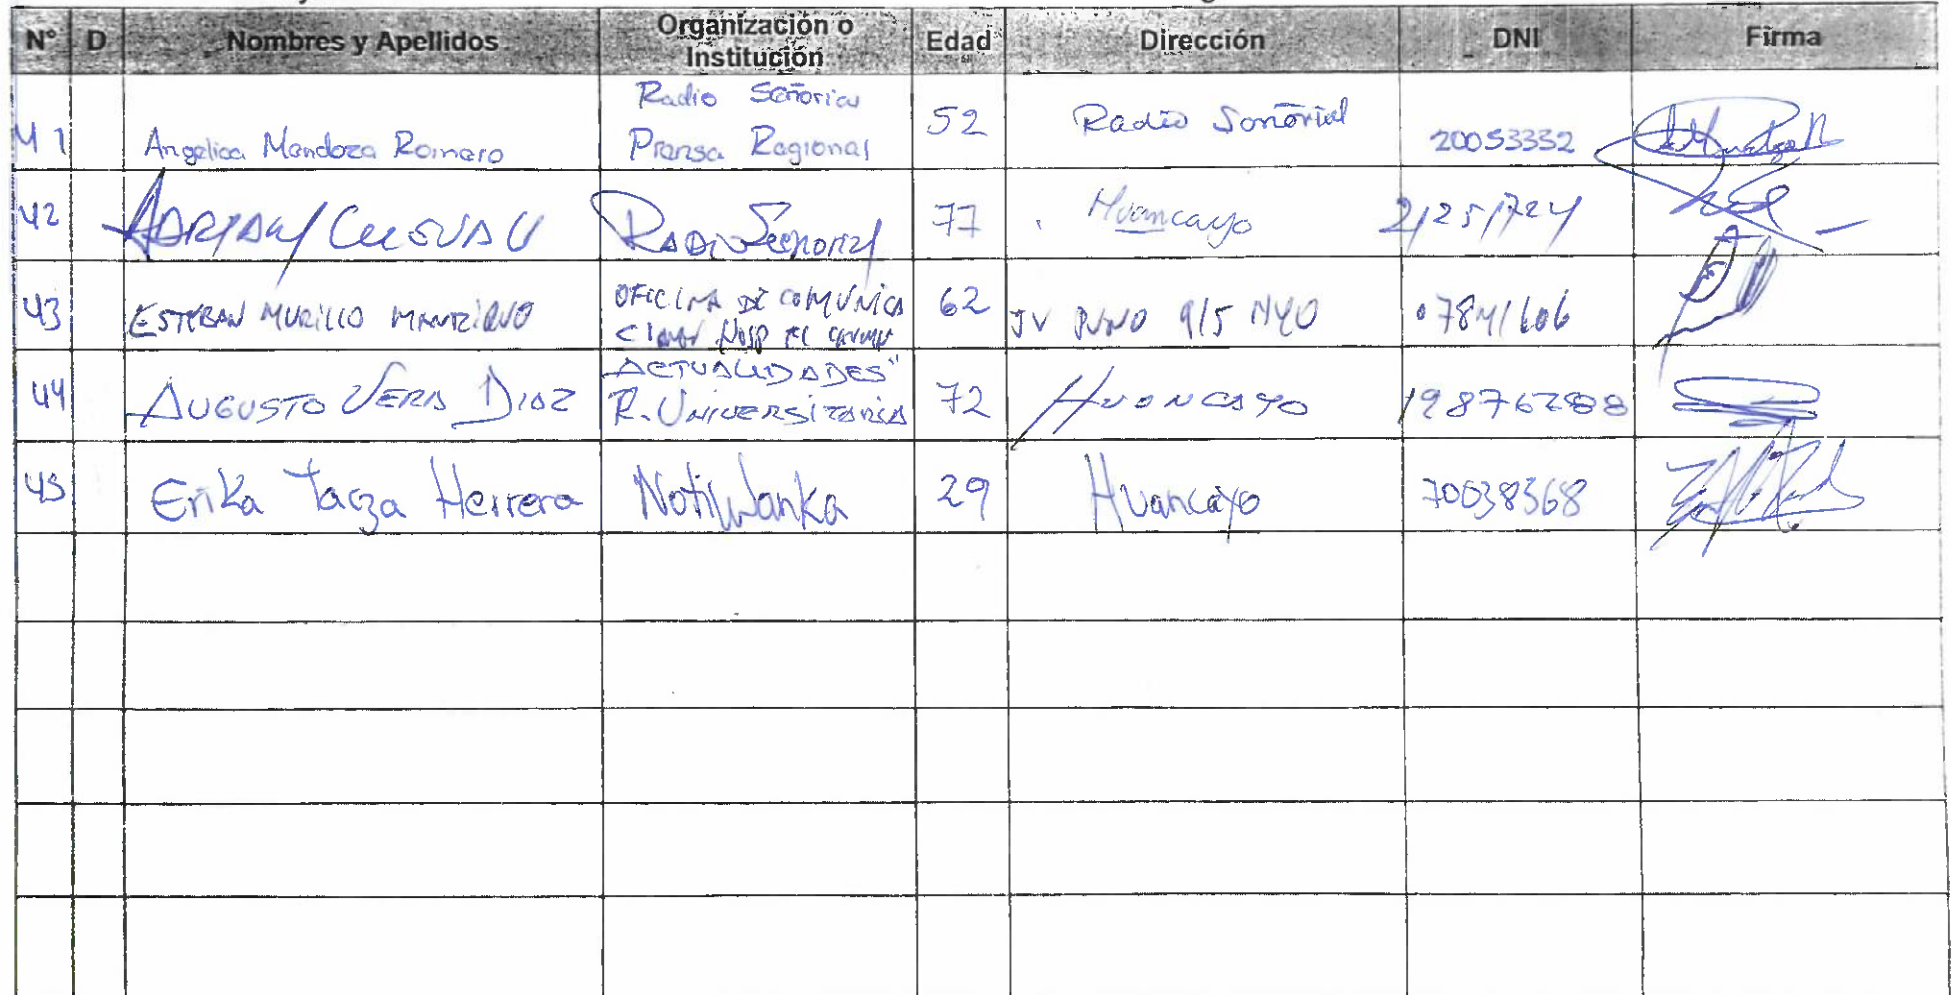 N° D Nombres y Apellidos Organización o Institución Edad Dirección DNI Firma
41 Angelica Mendoza Romero Radio Señorial Prensa Regional 52 Radio Señorial 20053332
42 Radio Señorial 77 Huancayo
43 ESTEBAN MURILLO MANRIQUE OFICINA DE COMUNICA 62 PUNO 915 HYO 07841606
44 AUGUSTO VERA DIAZ ACTUALIDADES" R. UNIVERSITARIA 72 HUANCAYO 19876288
45 Erika Taza Herrera NotiWanka 29 Huancayo 70038368